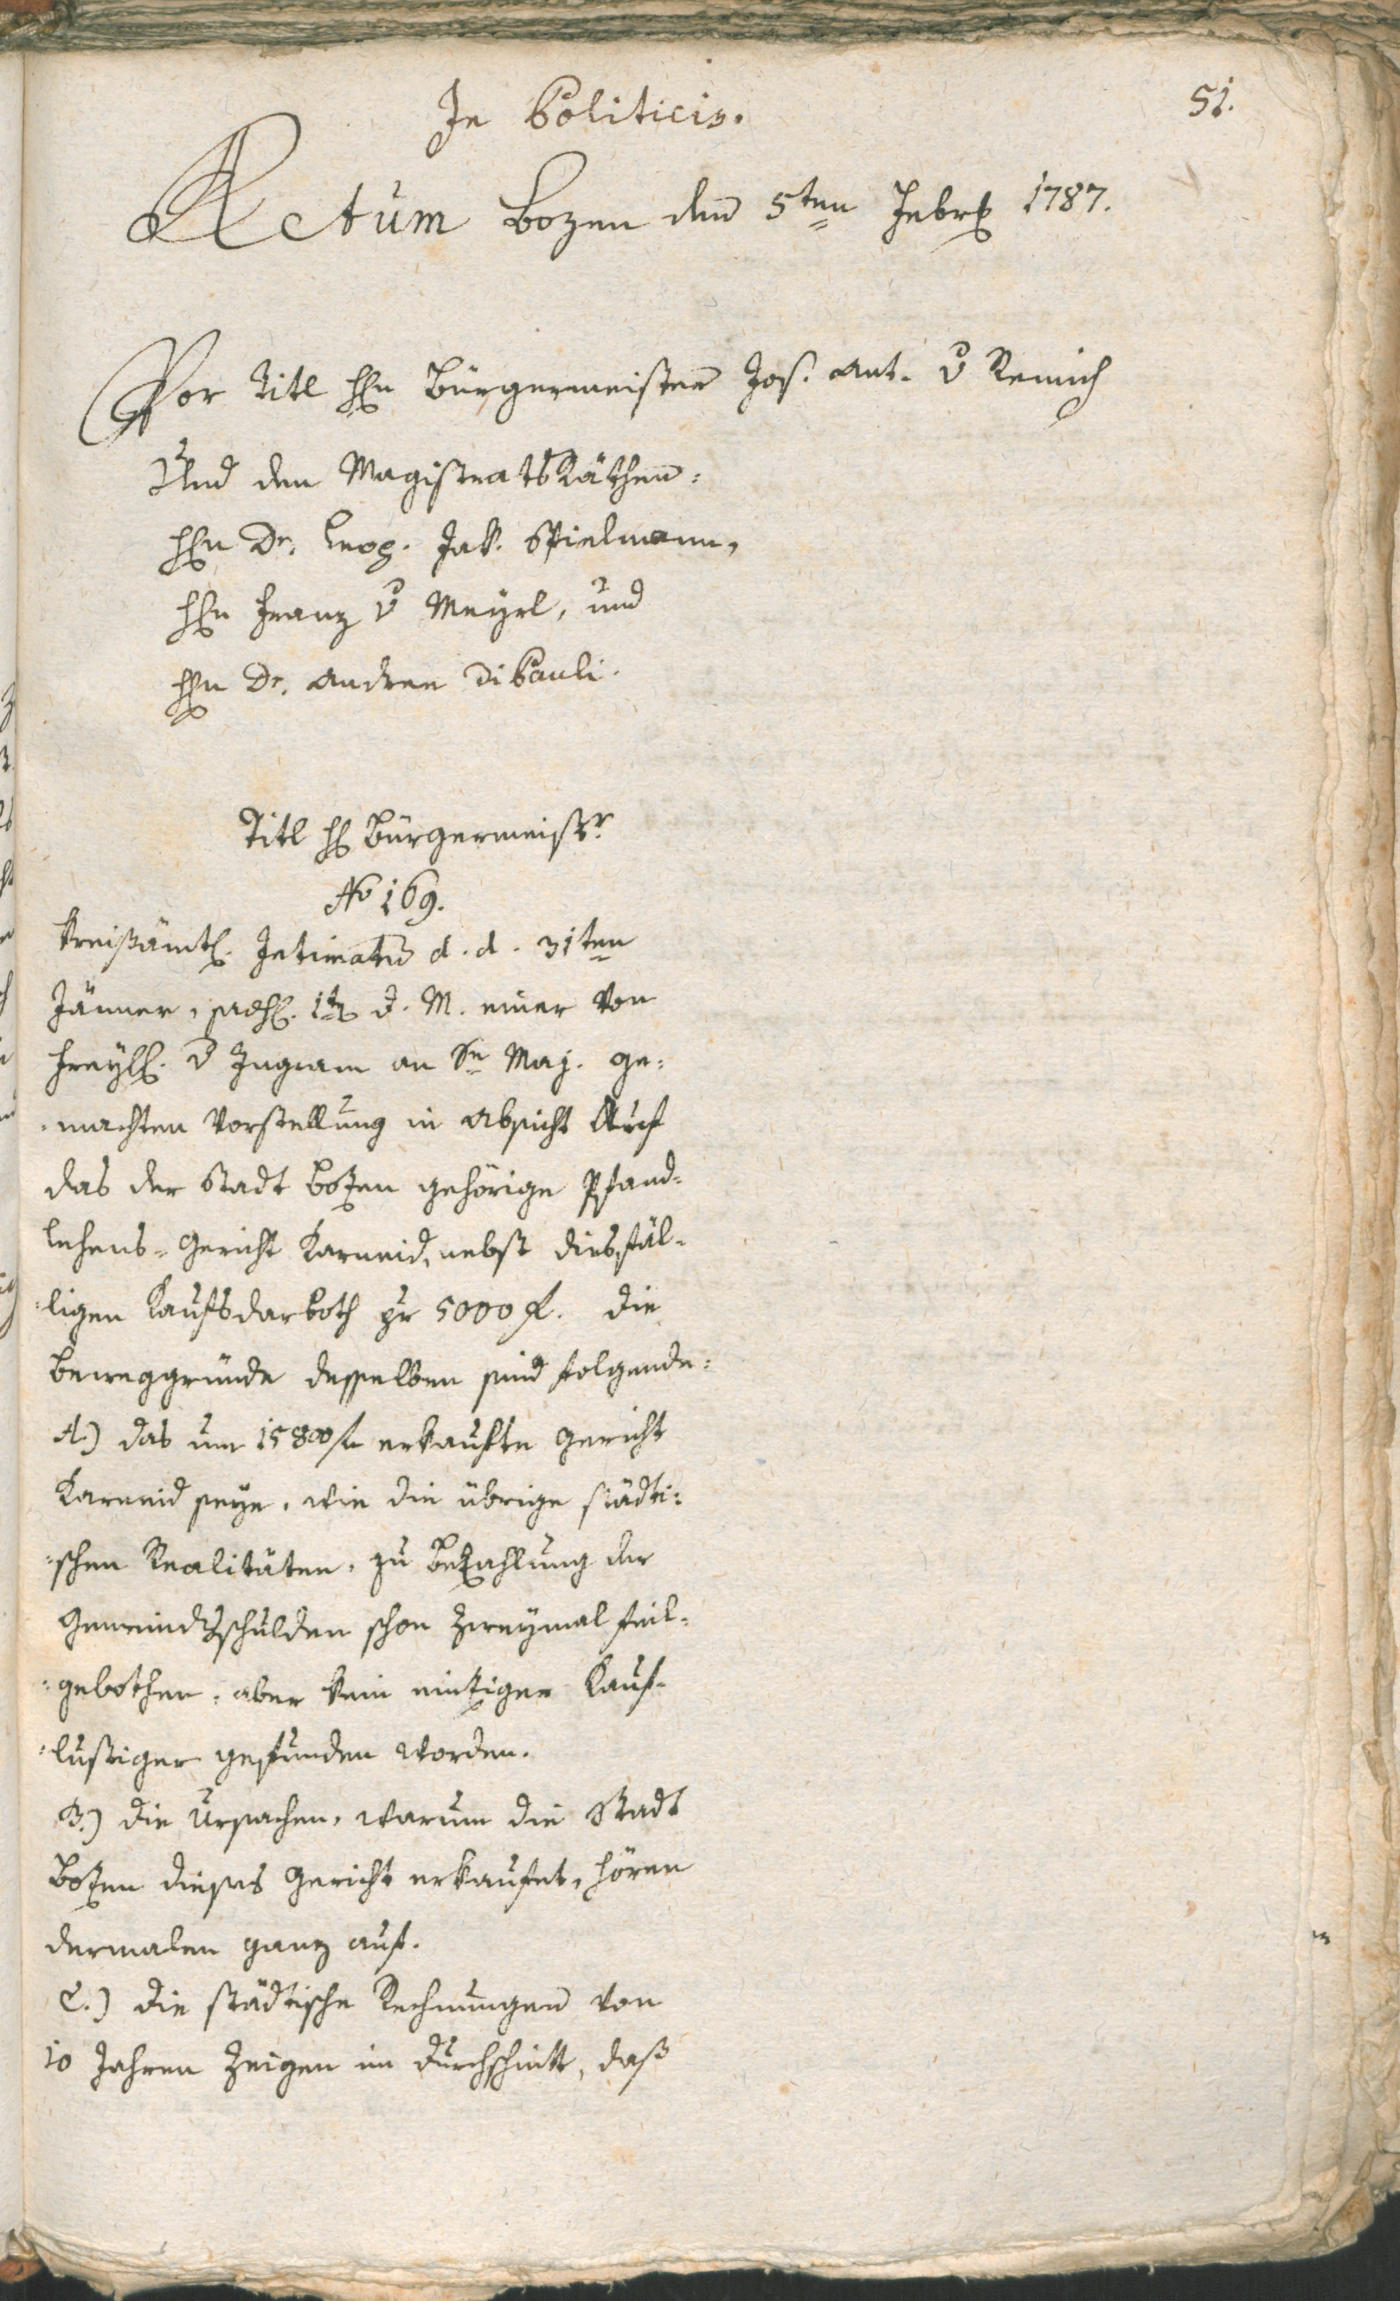 51.
In Politicis.
Actum Bozen den 5ten Febr 1787.
Vor Titl Hn Bürgermeister Jos. Ant. v Remich
Und den Magistrats Räthen:
Hn Dr. Leop. Jak. Spielmann,
Hn Franz v Meyrl, und
Hn Dr. Andree Di Pauli.
Titl H Bürgermeistr
No 169.
Kreisämtl. Intimatum d. d. 31ten
Jänner, d. M. einer von
Freyll. v Ingram an Se Maj. ge:
:machten Vorstellung in Absicht Auf
das der Stadt Bozen gehörige Pfand-
lehens-Gericht Karneid, nebst diesfäl-
:ligen Kaufsdarboth pr 5000 f. Die
Beweggründe desselben sind folgende:
A.) das um 15800 f erkaufte Gericht
Karneid seye, wie die übrige städti:
:schen Realitäten, zu Bezahlung der
Gemeindsschulden schon zweymal feil-
:gebothen, aber kein einziger Kauf-
:lustiger gefunden worden.
B.) die Ursachen, warum die Stadt
Bozen dieses Gericht erkaufet, hören
dermalen ganz auf.
C.) die städtische Rechnungen von
10 Jahren zeigen im Durchschnitt, daß